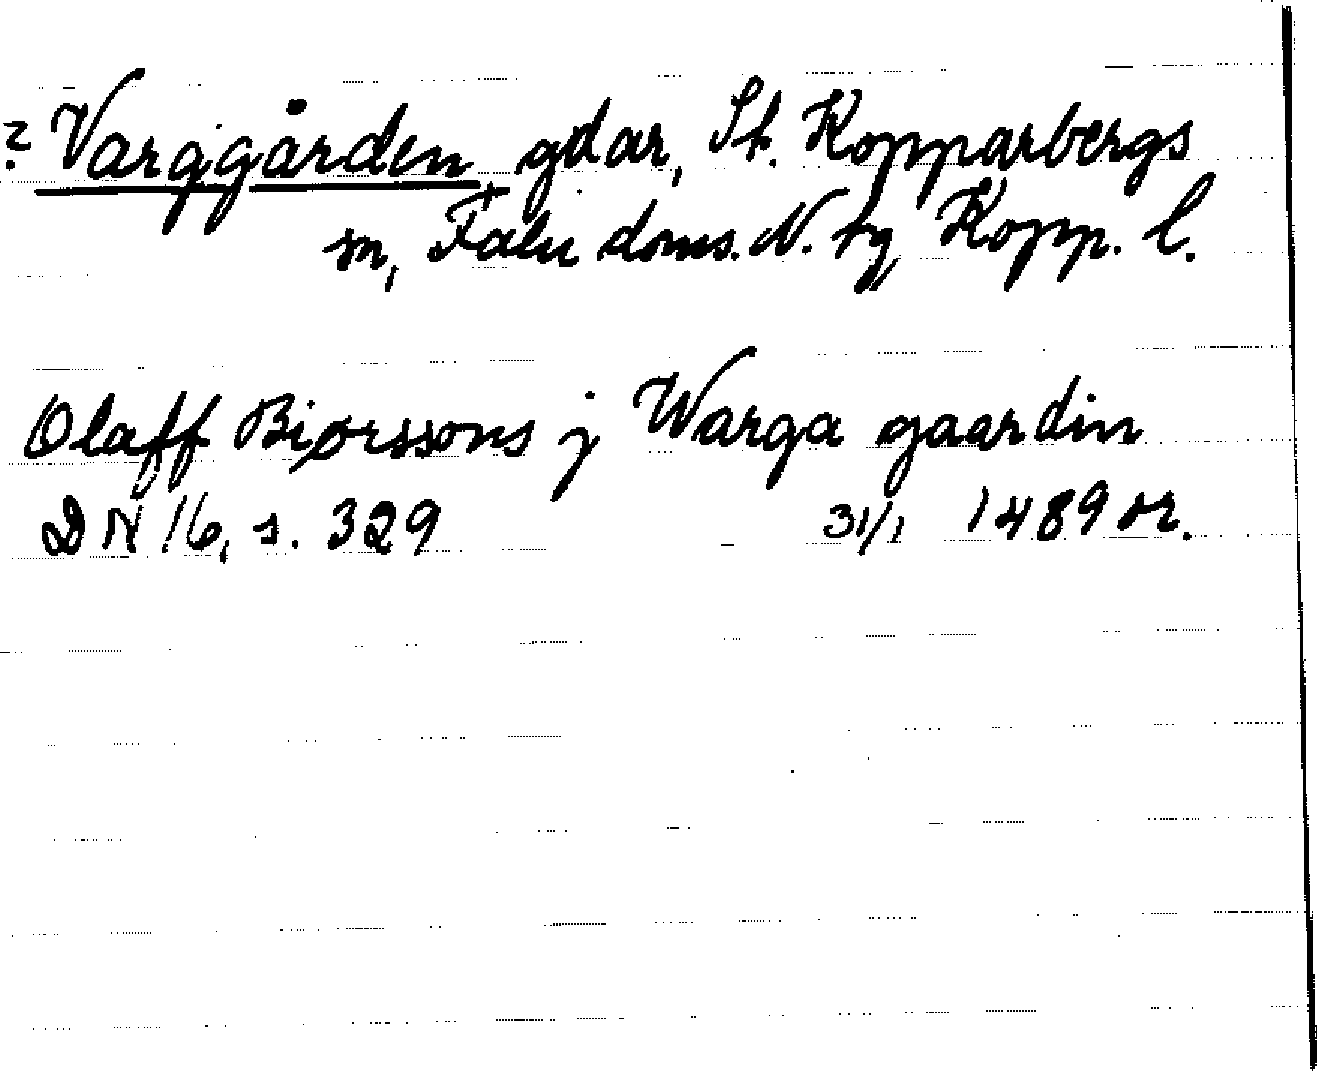 ? Varggården, gdar, St. Kopparbergs
sn, Falu doms. N. tg Kopp. l.
Olaff Biørssons j Warga gaardin
DN 16, s. 329 31/1 1489 or.